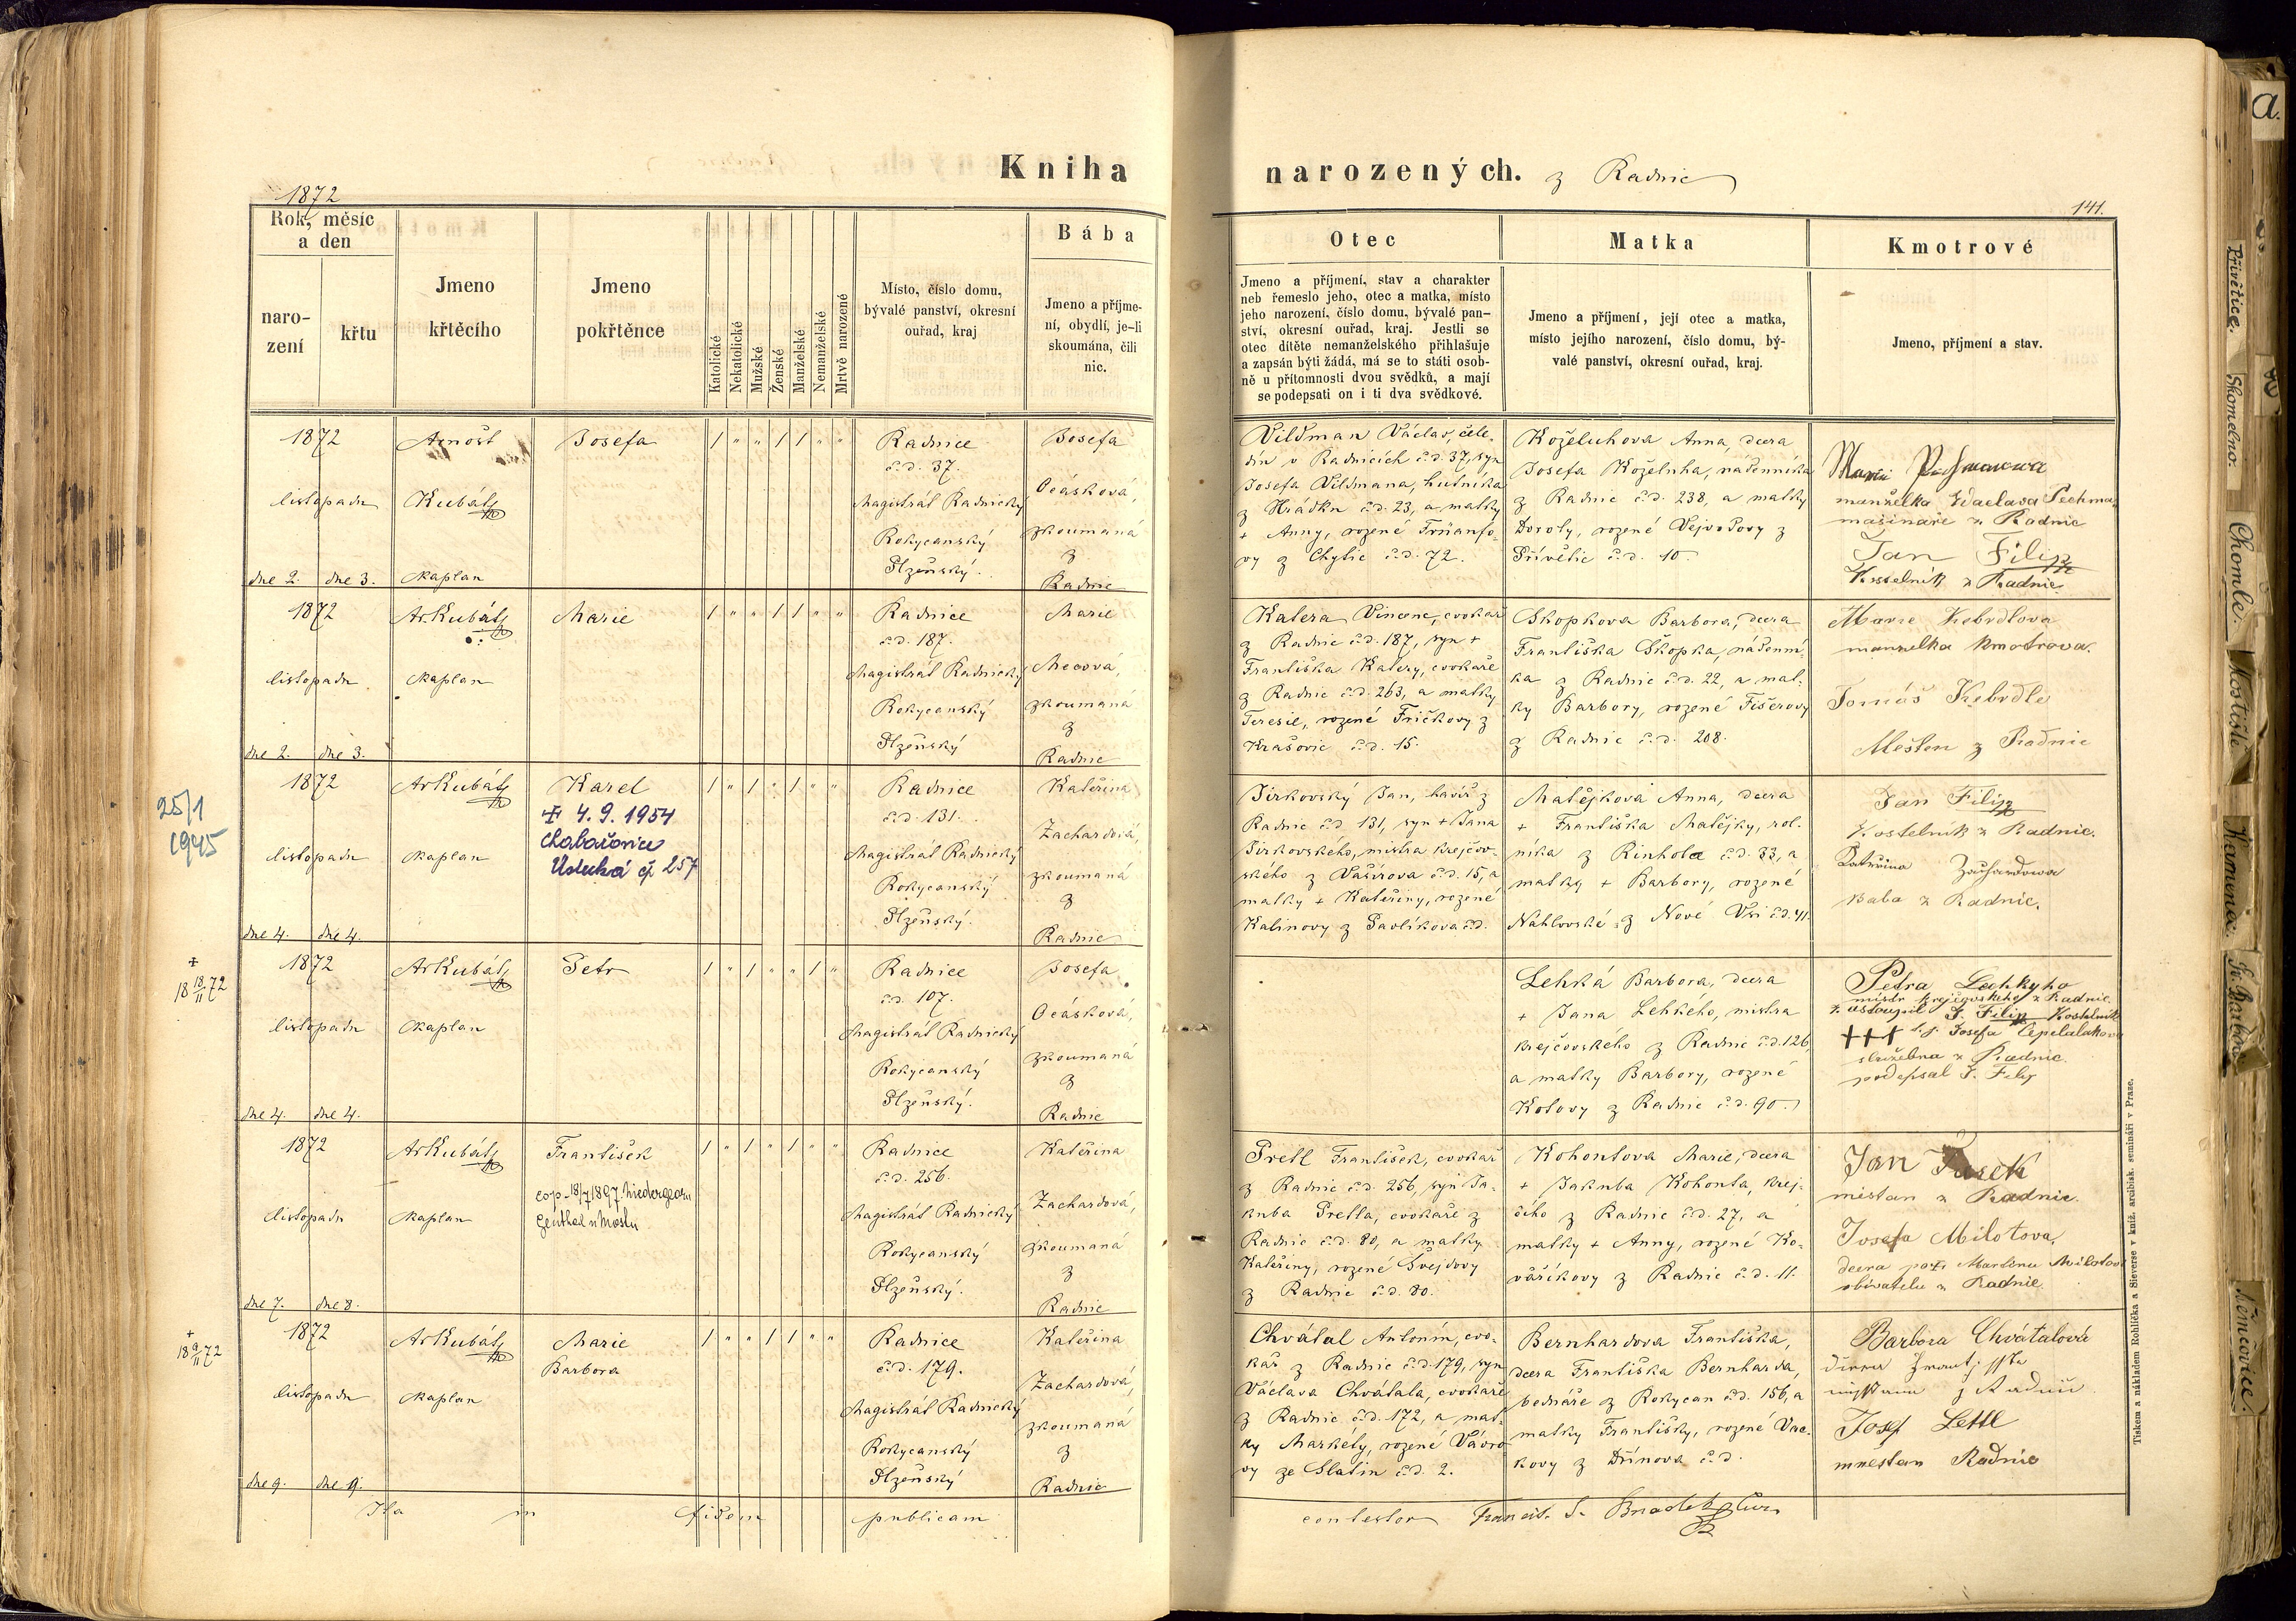 Kniha
narozených. z Radnic
1872
141.
Rok, měsíc
a den
naro-
zení
křtu
Jmeno
křtěcího
Jmeno
pokřtěnce
Katolické
Nekatolické
Mužské
Ženské
Manželské
Nemanželské
Mrtvě narozené
Místo, číslo domu,
bývalé panství, okresní
ouřad, kraj
Bába
Jmeno a příjme-
ní, obydlí, je-li
skoumána, čili
nic.
Otec
Jmeno a příjmení, stav a charakter
neb řemeslo jeho, otec a matka, místo
jeho narození, číslo domu, bývalé pan-
ství, okresní ouřad, kraj. Jestli se
otec dítěte nemanželského přihlašuje
a zapsán býti žádá, má se to státi osob-
ně u přítomnosti dvou svědků, a mají
se podepsati on i ti dva svědkové.
Matka
Jmeno a příjmení, její otec a matka,
místo jejího narození, číslo domu, bý-
valé panství, okresní ouřad, kraj.
Kmotrové
Jmeno, příjmení a stav.
1872
listopadu
dne 2. dne 3.
Arnošt
Kubát
kaplan
Josefa
/ " " / / " "
Radnice
č.d. 37.
Magistrát Radnický
Rokycanský
Plzeňský.
Josefa
Ocásková,
zkoumaná
z
Radnic
Vildman Václav, čele-
dín v Radnicích č.d. 37, syn
Josefa Vildmana, hutníka
z Hrádku č.d. 23, a matky
+ Anny, rozené
vy z Chylic č.d. 72.
Koželuhova Anna, dcera
Josefa Koželuha, nádenníka
z Radnic č.d. 238, a matky
Doroty, rozené Vejvodovy z
Přívětic č.d. 10.
manželka Waclava Pechma
mašináře z Radnic
Jan Filip
Kostelník z Radnic
1872
listopadu
dne 2. dne 3.
Ar. Kubát
kaplan
Marie
/ " " / / " "
Radnice
č.d. 187.
Magistrát Radnický
Rokycanský
Plzeňský
Marie
Mecová,
zkoumaná
z
Radnic
Katera Vincenc, cvokař
z Radnic č.d. 187, syn +
Františka Katery, cvokaře
z Radnic č.d. 263, a matky
Teresie, rozené Fričkovy z
Krašovic č.d. 15.
Skopkova Barbora, dcera
Františka Skopka, nádenní-
ka z Radnic č.d. 22, a mat-
ky Barbory, rozené Fišerovy
z Radnic č.d. 208.
Marie Kebrdlova
manzelka kmotrova.
Tomáš Kebrdle
Mešten z Radnic
25/1
1945
1872
listopadu
dne 4. dne 4.
Ar Kubát
kaplan
Karel
+ 4. 9. 1954
Chabařovice
Ústecká čp 257
/ " / " / " "
Radnice
č.d. 131.
Magistrát Radnický
Rokycanský
Plzeňský.
Kateřina
Zachardová,
zkoumaná
z
Radnic
Jirkovský Jan, havíř z
Radnic č.d. 131, syn + Jana
Jirkovského, mistra krejčov-
ského z Vašírova č.d. 15, a
matky + Kateřiny, rozené
Kalinovy z Pavlíkova č.d.
Matějková Anna, dcera
+ Františka Matějky, rol-
níka z Rinholce č.d. 33, a
matky + Barbory, rozené
Nahlovské z Nové Vsi č.d. 41.
Jan Filip
Kostelník z Radnic.
Kateřina Zachardowa
Baba z Radnic.
+
18 18/11 72
1872
listopadu
dne 4. dne 4.
Ar Kubát
kaplan
Petr
/ " / " " / "
Radnice
č.d. 107.
Magistrát Radnický
Rokycanský
Plzeňský.
Josefa
Ocásková,
zkoumaná
z
Radnic
Lehká Barbora, dcera
+ Jana Lehkého, mistra
krejčovského z Radnic č.d. 126,
a matky Barbory, rozené
Kotovy z Radnic č.d. 90.
Petra Lehkyho
mistr krejčovského z Radnic
zastoupil J. Filip Kostelník
+++ Josefa
služebna z Radnic.
podepsal J. Filip
1872
listopadu
dne 7. dne 8.
Ar Kubát
kaplan
František
cop. 18/7 1897 Niedergeorgen
thal u Mostu
/ " / " / " "
Radnice
č.d. 256.
Magistrát Radnický
Rokycanský
Plzeňský.
Kateřina
Zachardová,
zkoumaná
z
Radnic
Pretl František, cvokař
z Radnic č.d. 256, syn Ja-
kuba Pretla, cvokaře z
Radnic č.d. 80, a matky
Kateřiny, rozené Švejdovy
z Radnic č.d. 80.
Kohoutova Marie, dcera
+ Jakuba Kohouta, krej-
čího z Radnic č.d. 27, a
matky + Anny, rozené Ko-
vaříkovy z Radnic č.d. 11.
Jan
mistan z Radnic.
Josefa Milotova,
dcera Martina Milotova
obivatele z Radnic.
+
18 9/11 72
1872
listopadu
dne 9. dne 9.
Ar Kubát
kaplan
Marie
Barbora
/ " " / / " "
Radnice
č.d. 179.
Magistrát Radnický
Rokycanský
Plzeňský
Kateřina
Zachardová,
zkoumaná
z
Radnic
Chvátal Antonín, cvo-
kář z Radnic č.d. 179, syn
Václava Chvátala, cvokaře
z Radnic č.d. 172, a mat-
ky Markéty, rozené Vávro
vy ze Slatin č.d. 2.
Bernhardova Františka,
dcera Františka Bernharda,
bednáře z Rokycan č.d. 156, a
matky Františky, rozené Vac-
kovy z Dřínova č.d.
Barbora Chvátalová
Josef Lettl
mnestan Radnic
Ita in fidem publicam
contestor Francis. S.
Tiskem a nákladem Rohlíčka a Sieverse v kníž. arcibisk. semináři v Praze.
a.
Přívětice.
Skomelno.
Chomle.
Mostiště
Kamenec.
Sv. Barbora
Němčovice